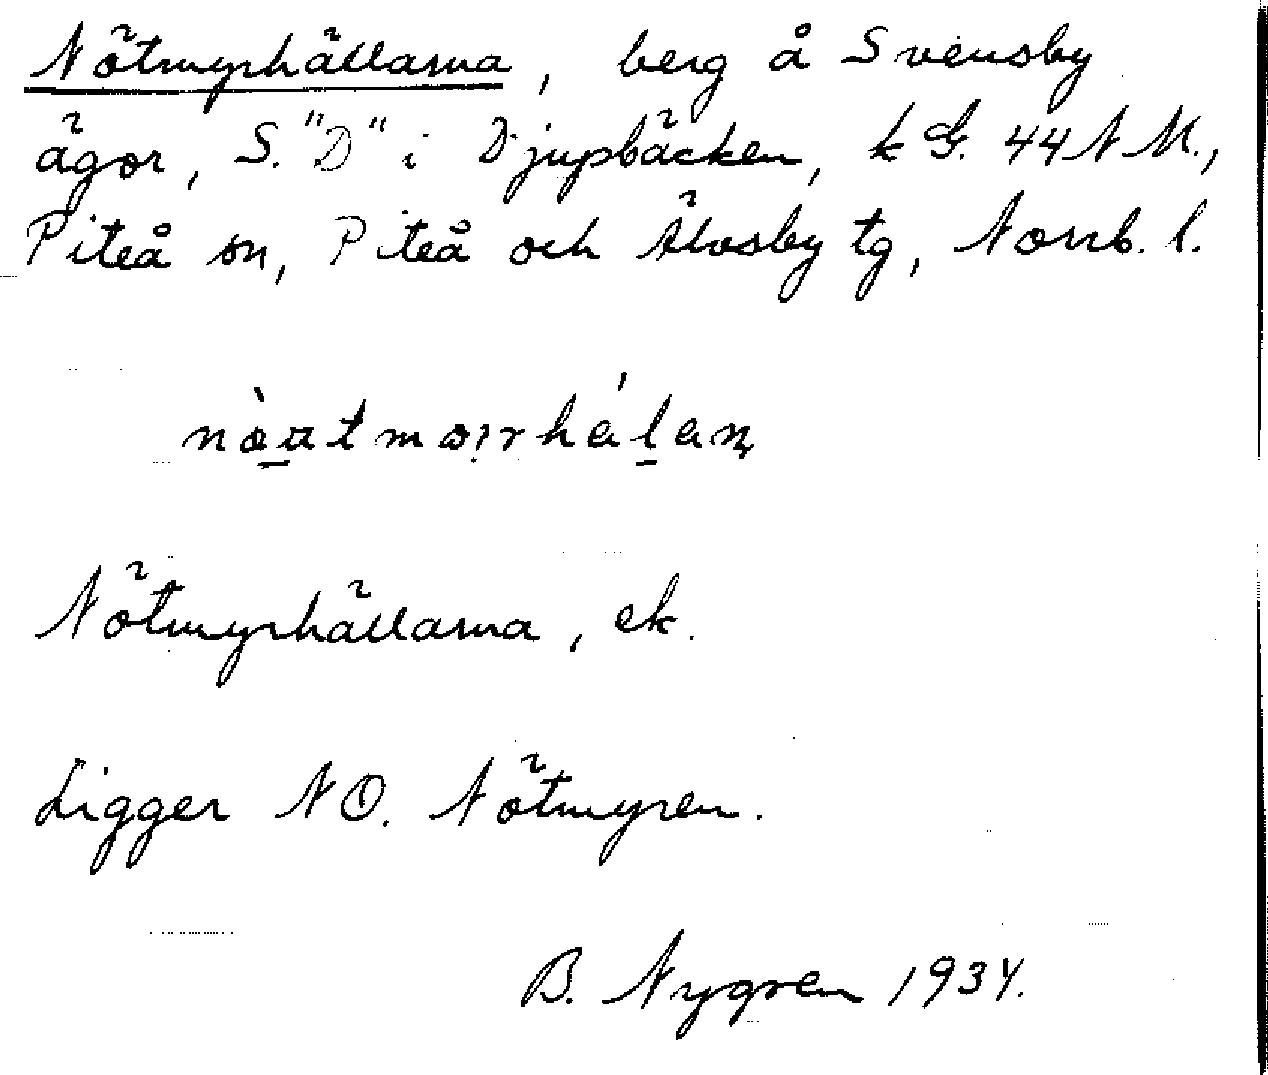 Nötmyrhällarna, berg å Svensby
ägor, S. "D" i Djupbäcken, k G. 44 N M.,
Piteå sn, Piteå och Älvsby tg, Norrb. l.
Nötmyrhällarna, ek.
Ligger NO. Nötmyren.
B. Nygren 1934.